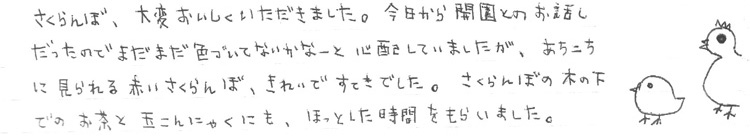 さくらんぼ、大変おいしくいただきました。今日から開園とのお話し
だったのでまだまだ色づいてないかなーと心配していましたが、あちこち
に見られる赤いさくらんぼ、きれいですてきでした。さくらんぼの木の下
でのお茶と玉こんにゃくにも、ほっとした時間をもらいました。